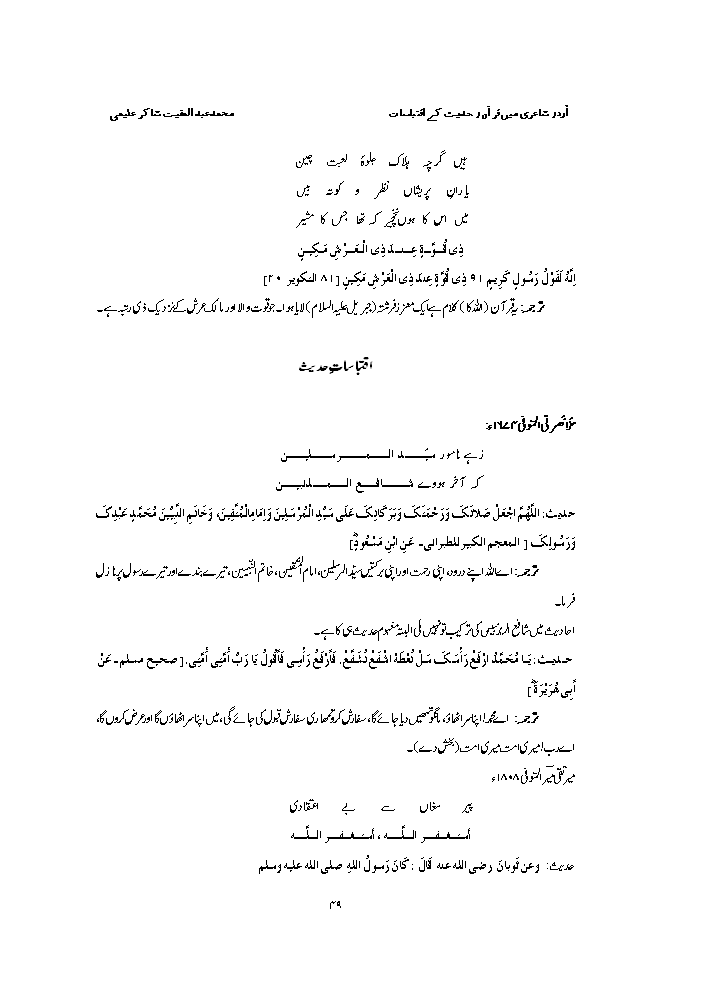 اُردو شاعری میں قرآن و حدیث کے اقتباسات
محمد عبدالمقیت شاکر علیمی
ہیں گرچہ ہلاک جلوۂ لعبت چین
یارانِ پریشاں نظر و کوتہ بیں
میں اس کا ہوں نخچیر کہ تھا جس کا مشیر
ذِی قُـوَّۃٍ عِنـدَ ذِی الْـعَـرْشِ مَـکِیـنٍ
اِنَّہُ لَقَوْلُ رَسُولٍ کَرِیمٍ ۱۹ ذِی قُوَّۃٍ عِندَ ذِی الْعَرْشِ مَکِینٍ [۸۱ التکویر ۲۰]
ترجمہ: یہ قرآن (اللہ کا) کلام ہے ایک معزز فرشتہ (جبریل علیہ السلام) لایا ہوا۔ جو قوت والا اور مالک عرش کے نزدیک ذی رتبہ ہے۔
اقتباساتِ حدیث
ملا نصرتی المتوفی ۱۶۷۴ء:
زہے نامور سیّـد الـمـرسـلـیـن
کہ آخر ہووے شـافـع الـمـذنبیـن
حدیث: اللَّہُمَّ اجْعَلْ صَلاتَکَ وَرَحْمَتَکَ وَبَرَکَاتِکَ عَلَی سَیِّدِ الْمُرْسَلِینَ وَاِمَامِ الْمُتَّقِینَ، وَخَاتَمِ النَّبِیِّینَ مُحَمَّدٍ عَبْدِکَ
وَرَسُولِکَ [ المعجم الکبیر للطبرانی۔ عَنِ ابْنِ مَسْعُودٍؓ]
ترجمہ: اے اللہ اپنے درود، اپنی رحمت اور اپنی برکتیں سیّد المرسلین، امام المتقین، خاتم النّبیین، تیرے بندے اور تیرے رسول پر نازل
فرما۔
احادیث میں شافع المذنبین کی ترکیب تو نہیں ملی البتہ مفہوم حدیث ہی کا ہے۔
حدیث: یَا مُحَمَّدُ ارْفَعْ رَأْسَکَ سَلْ تُعْطَہْ اشْفَعْ تُشَفَّعْ، فَأَرْفَعُ رَأْسِی فَأَقُولُ یَا رَبِّ أُمَّتِی أُمَّتِی. [صحیح مسلم۔ عَنْ
أَبِی ھُرَیْرَۃَؓ]
ترجمہ: اے محمدؐ! اپنا سر اٹھاؤ، مانگو تمھیں دیا جائے گا، سفارش کرو تمھاری سفارش قبول کی جائے گی، میں اپنا سر اٹھاؤں گا اور عرض کروں گا،
اے رب! میری امت میری امت (بخش دے)۔
میر تقی میرؔ المتوفی ۱۸۰۸ء
پیر مغاں سے بے اعتقادی
أستـغـفـر الـلّـہ ، أستـغـفـر الـلّـہ
حدیث: وعن ثوبان رضی اللہ عنہ قَالَ : کَانَ رَسولُ اللهِ صلی اللہ علیہ وسلم
۴۹